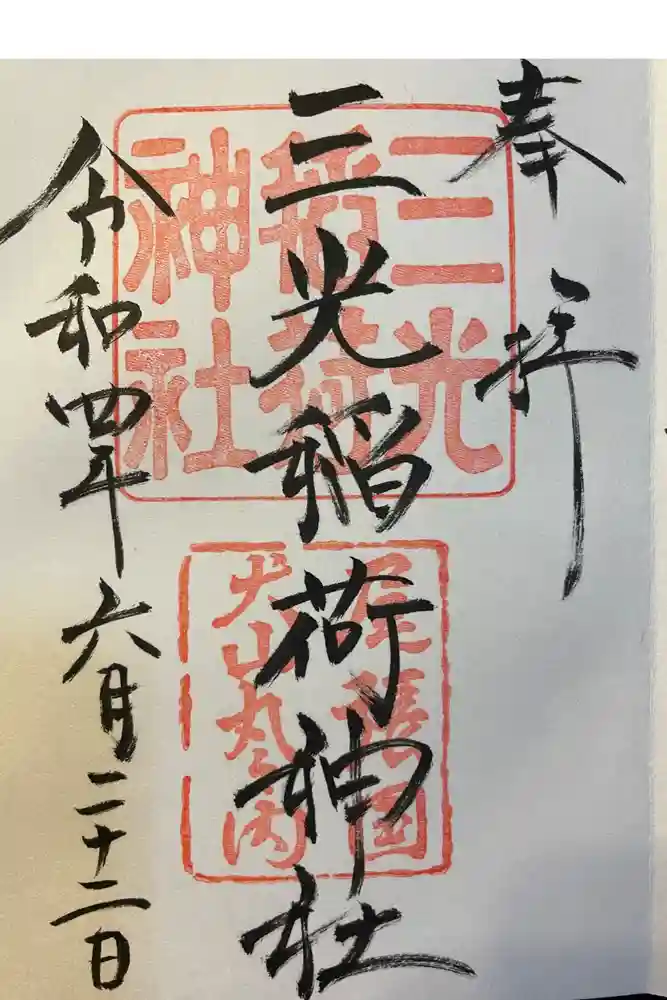 奉拝
三光稲荷神社
令和四年六月二十二日
三光
稲荷
神社
尾張国
犬山丸之内